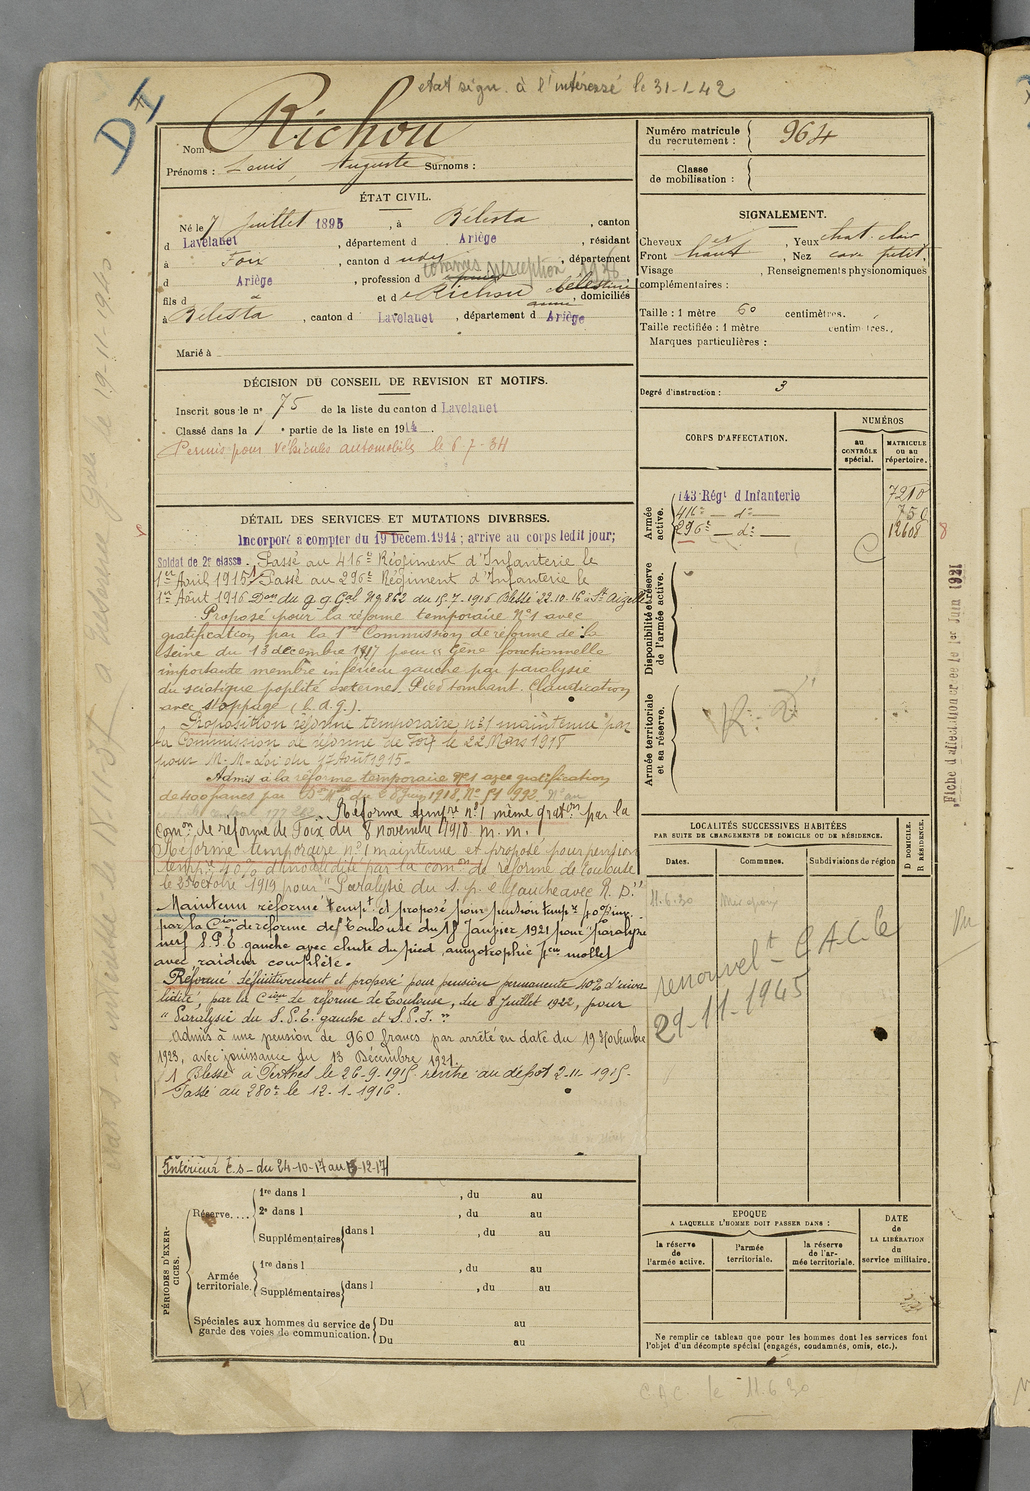 etat sign. à l'intéressé le 31-1-42
D I
Nom : Richou
Prénoms : Louis, Auguste Surnoms :
ÉTAT CIVIL.
Né le 7 Juillet 1895, à Bélesta, canton
d Lavelanet, département d Ariège, résidant
à Foix, canton d udy, département
d Ariège, profession d commis perception 1926
fils d et d Richou Célestine, domiciliés
à Bélesta, canton d Lavelanet, département d Ariège
Marié à
DÉCISION DU CONSEIL DE REVISION ET MOTIFS.
Inscrit sous le n° 75 de la liste du canton d Lavelanet
Classé dans la 1 e partie de la liste en 1914.
Permis pour Véhicules automobiles le 6-7-34
DÉTAIL DES SERVICES ET MUTATIONS DIVERSES.
Incorporé à compter du 19 Décem. 1914 ; arrive au corps ledit jour;
Soldat de 2e classe. Passé au 416e Régiment d'Infanterie le
1er Avril 1915. Passé au 296e Régiment d'Infanterie le
1er Août 1916 Don du g.q.Gal N° 9862 du 15.7.1916 Blessé 22.10.16 à St
Proposé pour la réforme temporaire N°1 avec
gratification par la 1re Commission de réforme de la
Seine du 13 décembre 1917 pour "Gêne fonctionnelle
importante membre inférieur gauche par paralysie
du sciatique poplité externe. Pied tombant. Claudication
avec stoppage (b. d. g.).
Proposition réforme temporaire n°1 maintenue par
la Commission de réforme de Foix le 22 Mars 1918
pour M. M. Loi du 17 Août 1915.
Admis à la réforme temporaire N°1 avec gratification
de 400 francs par Don Mlle du 28 Juin 1918, N° 51 992. N° au
Réforme tempre n°1 même graton par la
Comon de réforme de Foix du 8 novembre 1918 m. m.
Réforme temporaire n°1 maintenue et proposé pour pension
tempre 40% d'invalidité par la comon de réforme de Toulouse
le 25 octobre 1919 pour "Paralysie du s. p. e. gauche avec R. D."
Maintenu réformé tempt et proposé pour pension tempre 40% inv.
par la Cion de réforme de Toulouse du 18 Janvier 1921 pour "paralysie
nerf S.P.E gauche avec chute du pied, amyotrophie mollet
avec raideur complète.
Réformé définitivement et proposé pour pension permanente 40% d'inva
lidité, par la Cion de réforme de Toulouse, du 8 Juillet 1922, pour
"Paralysie du S.P.E. gauche et S.P.I."
Admis à une pension de 960 francs par arrêté en date du 19 Novembre
1923, avec jouissance du 13 Décembre 1921.
(1 Blessé à Perthes le 26-9-1915 rentré au dépôt 2-11-1915.
Passé au 280e le 12-1-1916.
Intérieur C.S - du 24-10-17 au 13-12-17
PÉRIODES D'EXERCICES.
Réserve....
1re dans l , du au
2e dans l , du au
Supplémentaires dans l , du au
Armée territoriale.
1re dans l , du au
Supplémentaires dans l , du au
Spéciales aux hommes du service de garde des voies de communication.
Du au
Du au
Numéro matricule du recrutement : 964
Classe de mobilisation :
SIGNALEMENT.
Cheveux , Yeux chat. clair
Front haut, Nez cave petit,
Visage , Renseignements physionomiques
complémentaires :
Taille : 1 mètre 60 centimètres.
Taille rectifiée : 1 mètre centimètres.
Marques particulières :
Degré d'instruction : 3
CORPS D'AFFECTATION.
NUMÉROS
au CONTRÔLE spécial.
MATRICULE ou au répertoire.
Armée active.
143 Régt d'Infanterie 7210
416e — d° — 750
296e — d° — 12608
8
Disponibilité et réserve de l'armée active.
Armée territoriale et sa réserve.
Fiche d'affectation créée le 1er Juin 1921
LOCALITÉS SUCCESSIVES HABITÉES
PAR SUITE DE CHANGEMENTS DE DOMICILE OU DE RÉSIDENCE.
Dates.
Communes.
Subdivisions de région
D DOMICILE.
R RÉSIDENCE.
11-6-30
renouvelt
29-11-1945
EPOQUE
A LAQUELLE L'HOMME DOIT PASSER DANS :
la réserve de l'armée active.
l'armée territoriale.
la réserve de l'armée territoriale.
DATE de LA LIBÉRATION du service militaire.
Ne remplir ce tableau que pour les hommes dont les services font
l'objet d'un décompte spécial (engagés, condamnés, omis, etc.).
le 11.6.30